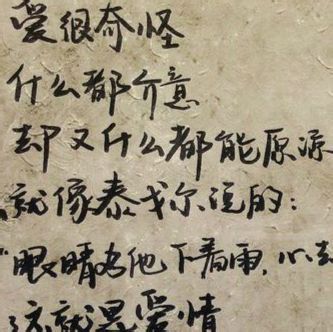 爱很奇怪
什么都介意
却又什么都能原谅
就像泰戈尔说的:
"眼睛为他下着雨,心
这就是爱情